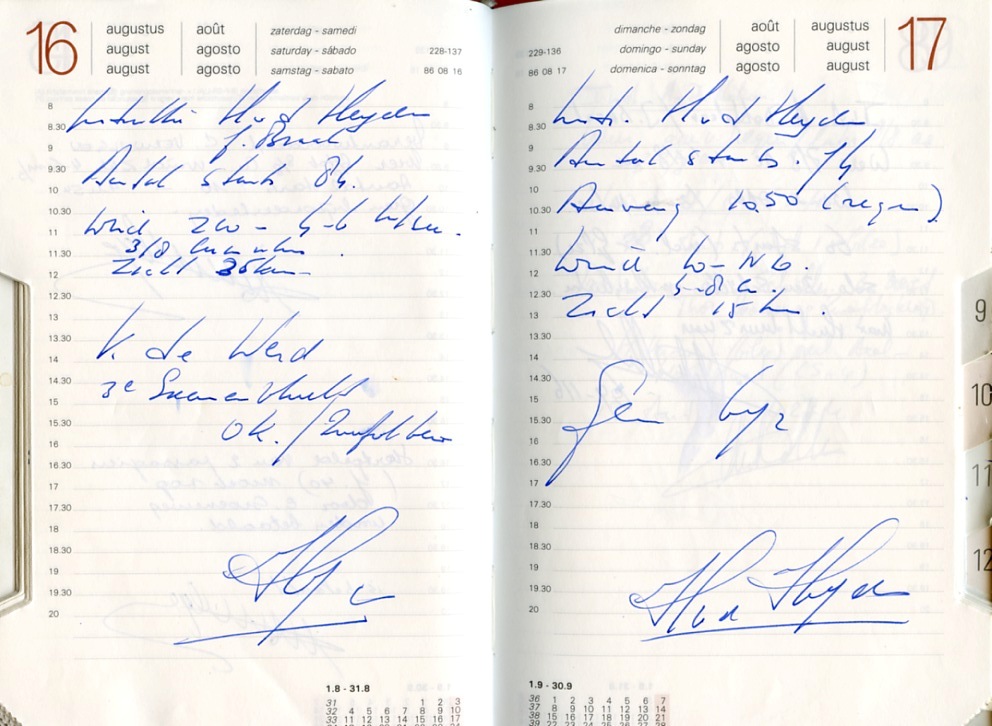 16
augustus août zaterdag - samedi
august agosto saturday - sábado 228-137
august agosto samstag - sabato 86 08 16
8
8.30 H v d Heyden
9
9.30 Aantal starts 84.
10
10.30 Wind ZW -
11
11.30 3/8 cumulus.
12 Zicht 35 km
12.30
13
13.30 V. de Werd
14
14.30 3e
15
15.30 OK. /
16
16.30
17
17.30
18
18.30
19
19.30
20
1.8 - 31.8
31 1 2 3
32 4 5 6 7 8 9 10
33 11 12 13 14 15 16 17
dimanche - zondag août augustus 17
229-136 domingo - sunday agosto august
86 08 17 domenica - sonntag agosto august
8
8.30 Instr. H v d Heyden
9
9.30 Aantal starts. 14
10
10.30 Aanvang 10.50 (regen)
11
11.30
12 Wind W-NW.
12.30 5-8 kn.
13 Zicht 15 km.
13.30
14
14.30
15
15.30 Geen byz
16
16.30
17
17.30
18
18.30
19
19.30 H v d Heyden
20
1.9 - 30.9
36 1 2 3 4 5 6 7
37 8 9 10 11 12 13 14
38 15 16 17 18 19 20 21
39 22 23 24 25 26 27 28
9
10
11
12